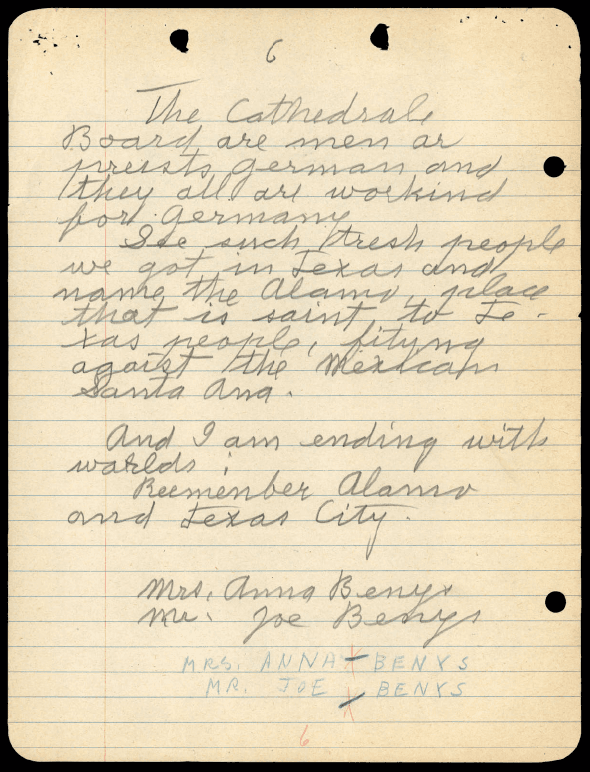 6
The Cathedrale
Board are men or
priests german and
they all are workind
for germany
See such tresh people
we got in Texas and
name the Alamo, place
that is saint to Te-
xas people, fityng
agaist the Mexican
Santa Ana.
And I am ending with
worlds:
Reemenber Alamo
and Texas City.
Mrs. Anna Benys
Mr. Joe Benys
MRS. ANNA BENYS
MR. JOE BENYS
6